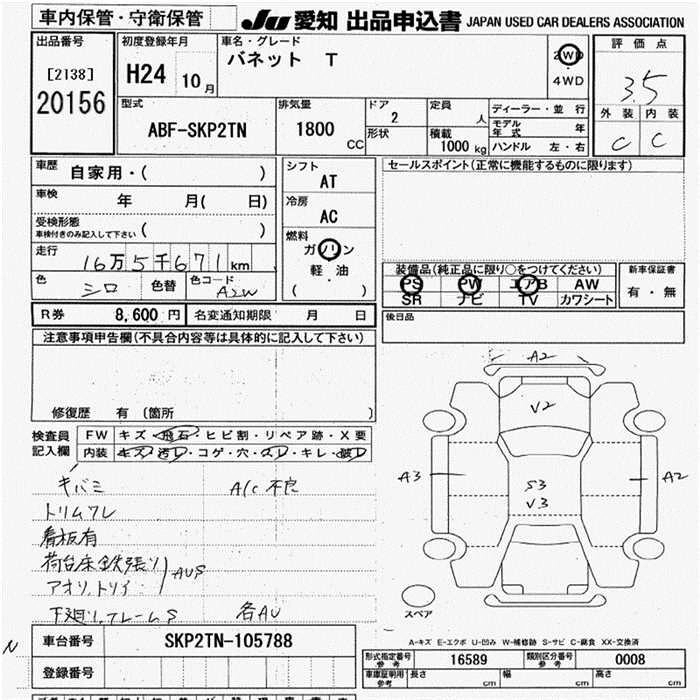 車内保管・守衛保管
JU 愛知 出品申込書 JAPAN USED CAR DEALERS ASSOCIATION
出品番号
[2138]
20156
初度登録年月
H24 10月
車名・グレード
バネット T
2WD
4WD
評価点
3.5
外装 内装
C C
型式
ABF-SKP2TN
排気量
1800 CC
ドア
2
形状
定員
人
積載
1000 kg
ディーラー・並行
モデル年式 年
ハンドル 左・右
車歴
自家用・( )
車検
年 月( 日)
受検形態
車検付きのみ記入して下さい ( )
走行
16万5千671 km
色
シロ
色替
色コード
A2W
シフト
AT
冷房
AC
燃料
ガソリン
軽油
( ・ )
セールスポイント(正常に機能するものに限ります)
装備品(純正品に限り○をつけてください)
PS PW エアB AW
SR ナビ TV カワシート
新車保証書
有・無
後日品
R券 8,600 円
名変通知期限 月 日
注意事項申告欄(不具合内容等は具体的に記入して下さい)
修復歴 有 (箇所 )
検査員
記入欄
FW キズ・飛石・ヒビ割・リペア跡・X要
内装 キズ・汚レ・コゲ・穴・スレ・キレ・破レ
キバミ A/C不良
トリムワレ
看板有
荷台床鉄張り
アオリ、トリイ
AUS
下廻り、フレームS 各AU
A2
V2
A3
S3
V3
A2
スペア
A-キズ E-エクボ U-凹み W-補修跡 S-サビ C-腐食 XX-交換済
N
車台番号 SKP2TN-105788
登録番号
形式指定番号 参考 16589
類別区分番号 参考 0008
車庫証明用 参考
長さ cm
幅 cm
高さ cm